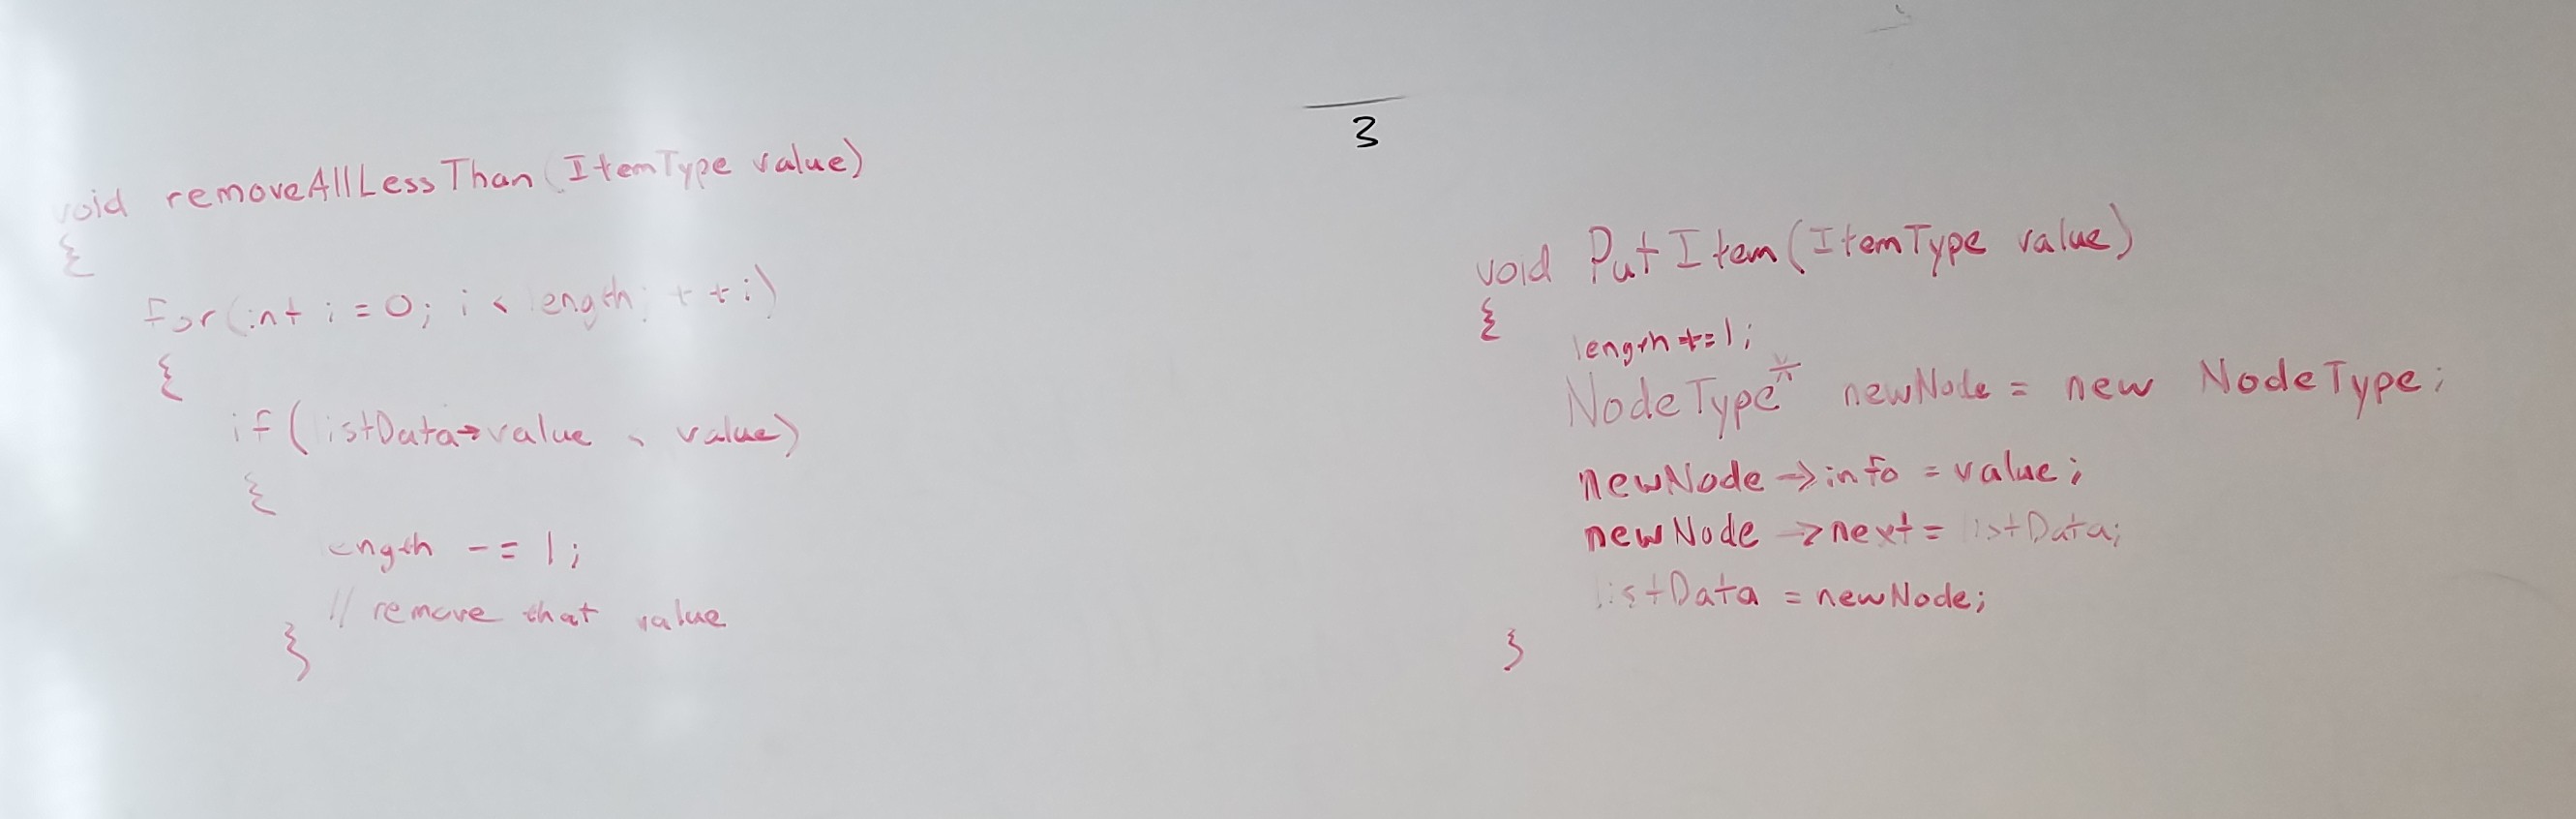 void removeAllLessThan(ItemType value)
{
for(int i=0; i < length; ++i)
{
if(listData->value < value)
{
length -= 1;
// remove that value
}
3
void PutItem(ItemType value)
{
length+=1;
NodeType* newNode = new NodeType;
newNode->info = value;
newNode->next = listData;
listData = newNode;
}